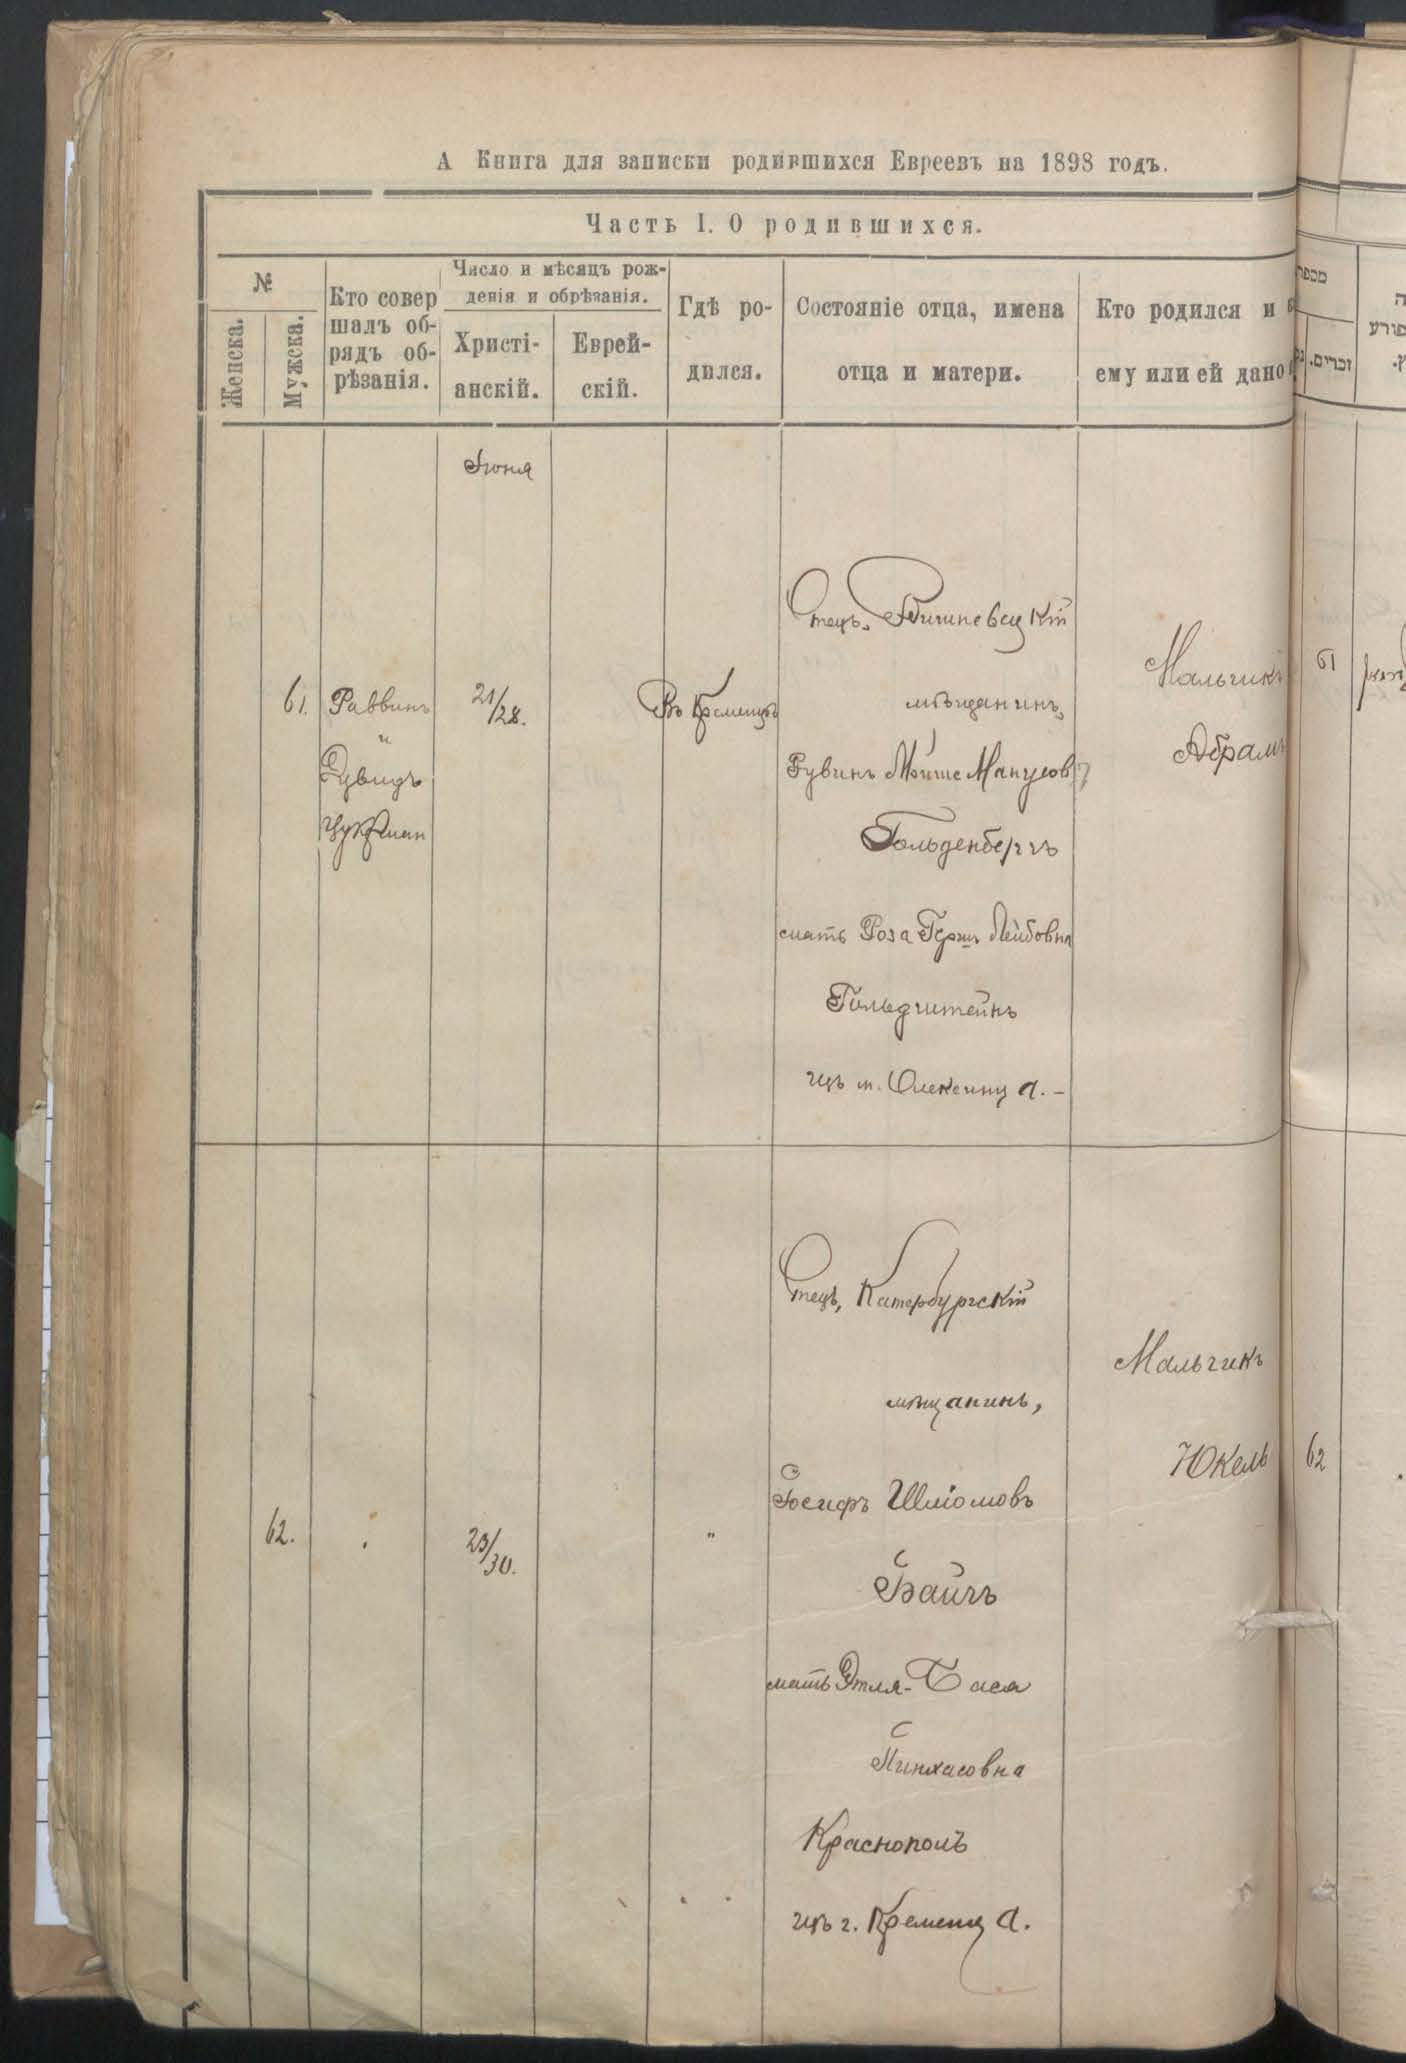 А Книга для записки родившихся Евреевъ на 1898 годъ.
Часть I. О родившихся.
№
Женска.
Мужска.
Кто совер
шалъ об-
рядъ об-
рѣзанія.
Число и мѣсяцъ рож-
денія и обрѣзанія.
Христі-
анскій.
Еврей-
скій.
Гдѣ ро-
дился.
Состояніе отца, имена
отца и матери.
Кто родился и
ему или ей дано
Іюня
61.
Раввинъ
и
Дувидъ
21/28.
Въ Кременцѣ
Отецъ,
мѣщанинъ,
Рувинъ Мойше
Гольденбергъ
мать Роза Гершъ Лейбовна
Гольдштейнъ
изъ м. Олексинца.-
Мальчикъ
Абрамъ
62.
23/30.
"
Отецъ, Катербургскій
мѣщанинъ,
Іосифъ Шліомовъ
Байчъ
мать Этля-Бася
Пинхасовна
Краснополь
изъ г. Кременца.
Мальчикъ
Юкель
זכרים.
61
62